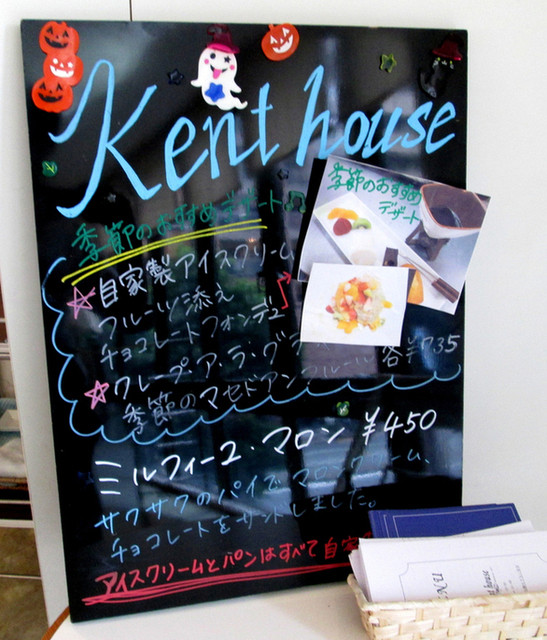 Kent house
季節のおすすめデザート
季節のおすすめ
デザート
☆自家製アイスクリーム
フルーツ添え
チョコレートフォンデュ
☆クレープ・ア・ラ・グラ
季節のマセドアンフルール 各¥735
ミルフィーユ・マロン ¥450
サクサクのパイでマロンクリーム、
チョコレートをサンドしました。
アイスクリームとパンはすべて自家
NU
house